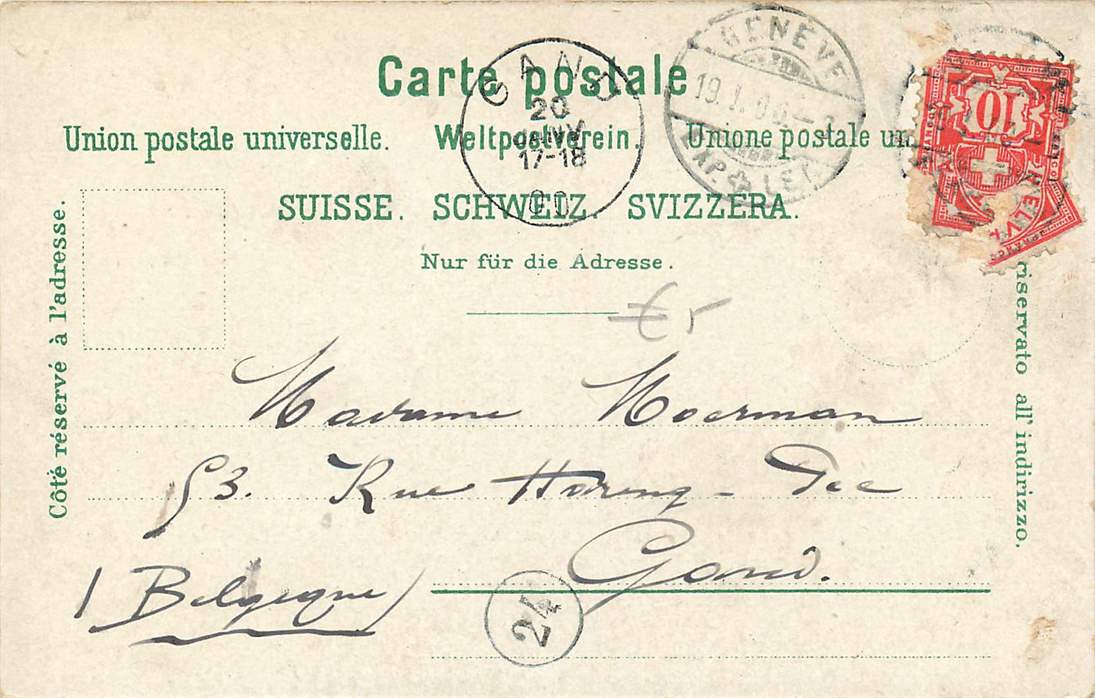 Carte postale
Union postale universelle. Weltpostverein. Unione postale un
SUISSE. SCHWEIZ. SVIZZERA.
Nur für die Adresse.
Côté réservé à l'adresse.
riservato all' indirizzo.
GAND
20
JANV
17-18
GENÈVE
19. I. 00
EXP. LET.
10
HELVE
€5
Madame Moerman
53. Rue
Gand.
(Belgique)
24